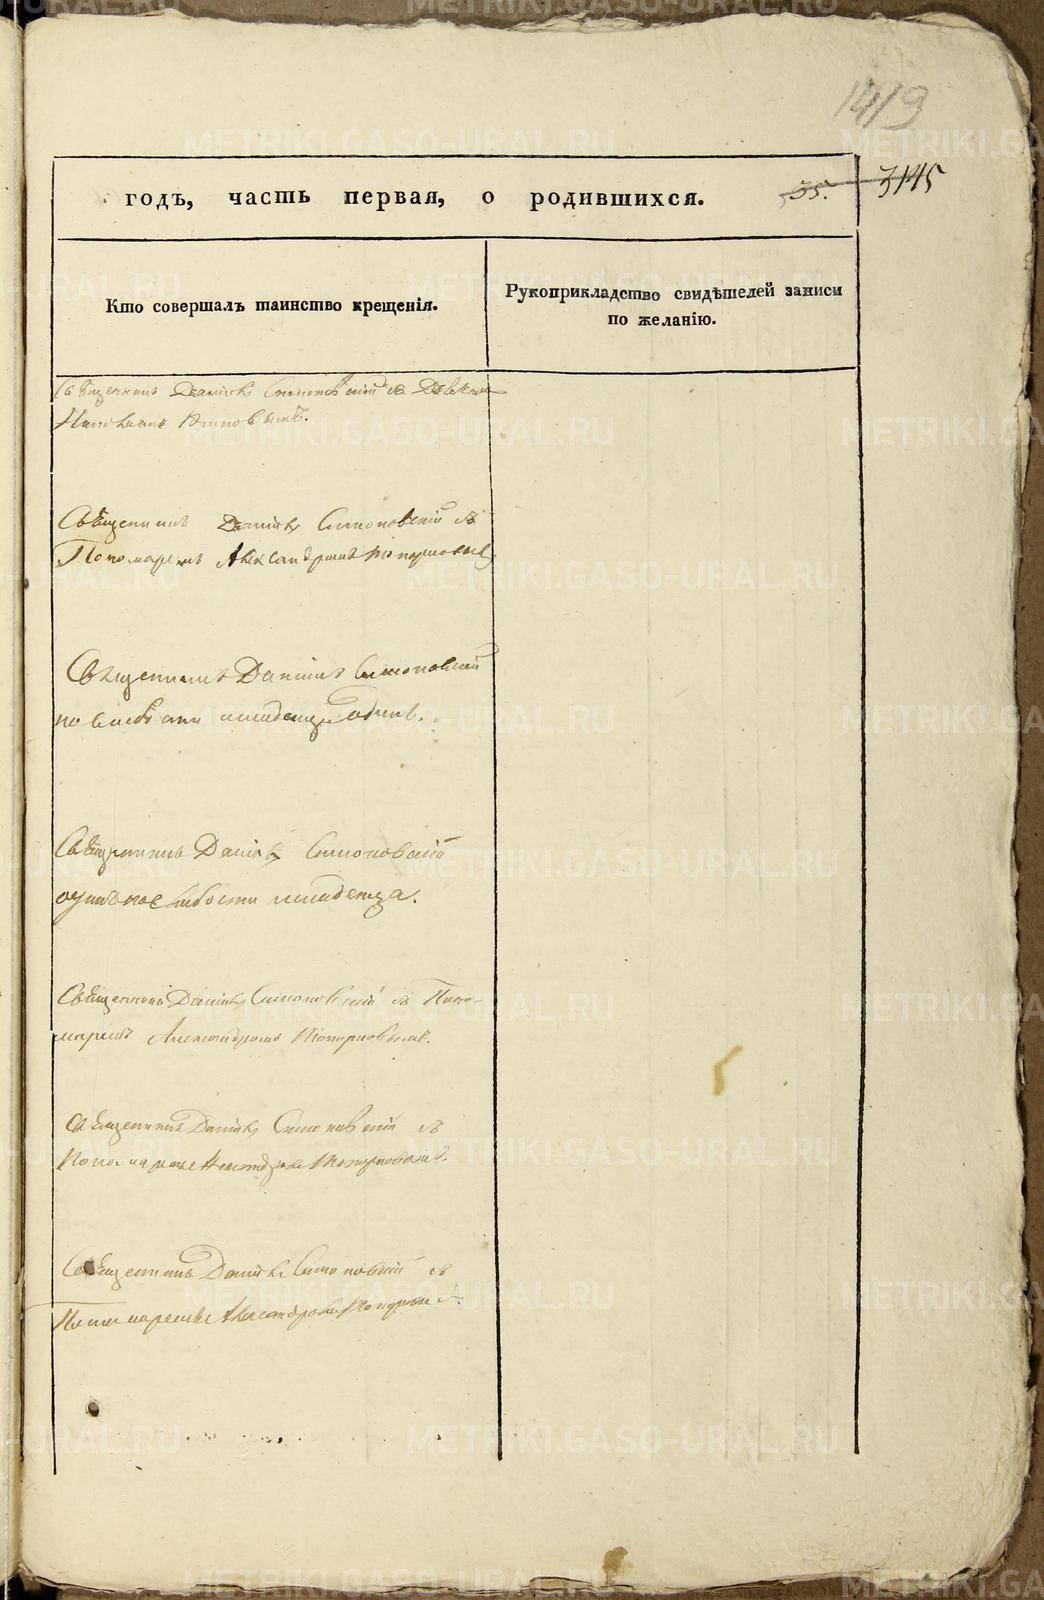 1419
годъ, часть первая, о родившихся.
35.
3145
Кто совершалъ таинство крещенія.
Рукоприкладство свидѣтелей записи
по желанію.
Священникъ Даніилъ Симоновскій съ
Священникъ Даніилъ Симоновскій съ
Пономаремъ Александромъ Топорковымъ
Священникъ Даніилъ Симоновскій
по слабости младенца одинъ.
Священникъ Даніилъ Симоновскій
слабости младенца.
Священникъ Даніилъ Симоновскій съ Поно-
маремъ Александромъ Топорковымъ.
Священникъ Даніилъ Симоновскій съ
Пономаремъ Александромъ Топорковымъ.
Священникъ Даніилъ Симоновскій съ
Пономаремъ Александромъ
METRIKI.GASO-URAL.RU